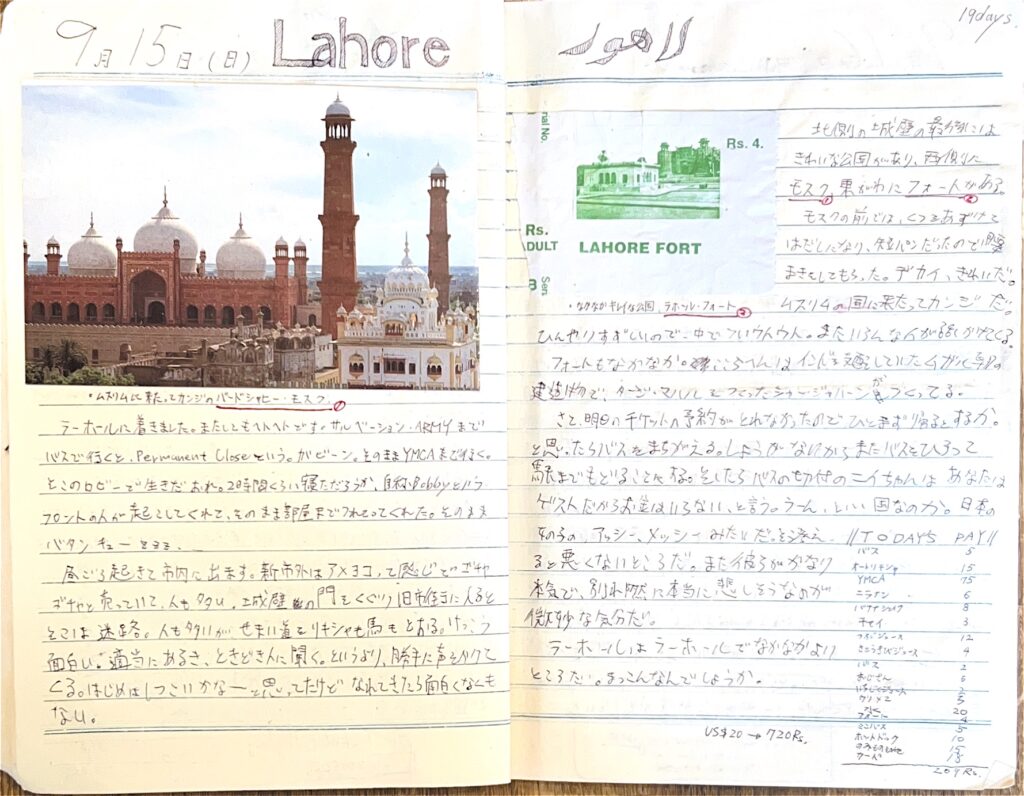 9月15日(日) Lahore
ラーホールに着きました。またしてもヘトヘトです。サルベーション・ARMYまで
バスで行くと、Permanent Closeという。ガビーン。そのままYMCAまで行く。
そこのロビーで生きだおれ。2時間くらい寝ただろうか、自称Bobbyという
フロントの人が起こしてくれて、そのまま部屋までつれてってくれた。そのまま
バタンチュー
昼ごろ起きて市内に出ます。新市外はアメヨコって感じでゴチャ
ゴチャと売っていて、人も多い。城壁の門をくぐり旧市街に入ると
そこは迷路。人も多いがせまい道をリキシャも馬もとおる。けっこう
面白い。適当にあるき、ときどき人に聞く。というより、勝手に声をかけて
くる。はじめはしつこいかなーと思ってたけどなれてきたら面白くなくも
ない。
・ムスリムに来たってカンジのバードシャヒー・モスク ①
لاهور
19days.
Rs. 4.
Rs.
DULT
LAHORE FORT
・なかなかキレイな公園、ラホール・フォート ②
北側の城壁の最後には
きれいな公園があり、西側に
モスク、東がわにフォートがある。
モスクの前では、くつをあずけて
はだしになり、短パンだったので腰
まきをしてもらった。デカイ、きれいだ。
ムスリムの国に来たってカンジだ。
ひんやりすずしいので、中で
フォートもなかなか。
建造物で、タージ・マハルをつくったシャー・ジャハーンがつくってる。
さて、明日のチケットの予約がとれなかったのでひとまず帰るとするか。
と思ったらバスをまちがえる。しょうがないからまたバスをひろって
駅までもどることになる。そしたらバスの切付のニイちゃんはあなたは
ゲストだからお金はいらない、と言う。うーん、といい国なのか。日本の
女の子のアッシー、メッシーみたいだ。そう考え
ると悪くないところだ。また彼らがかなり
本気で、別れ際に本当に悲しそうなのが
微妙な気分だ。
ラーホールはラーホールでなかなかよい
ところだ。まっこんなんでしょうか。
US$20 → 720Rs.
//TODAYS PAY//
バス 5
オートリキシャ 15
YMCA 75
ミラノン 6
バナナシェイク 8
チャイ 3
12
さとうきびジュース 4
バス 2
6
2
5
20
フォート 4
ミニバス 5
ホットドック 10
15
カード 15
209Rs.